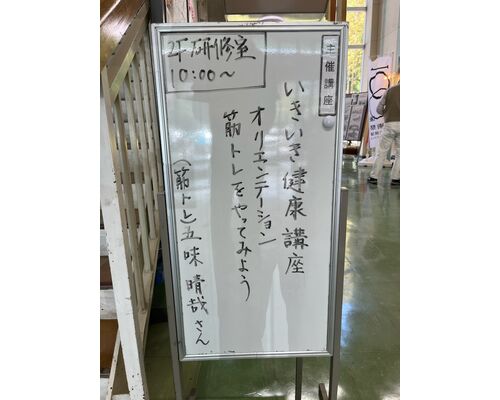 主催講座
いきいき健康講座
オリエンテーション
筋トレをやってみよう
2F研修室
10:00〜
(筋トレ 五味晴哉さん